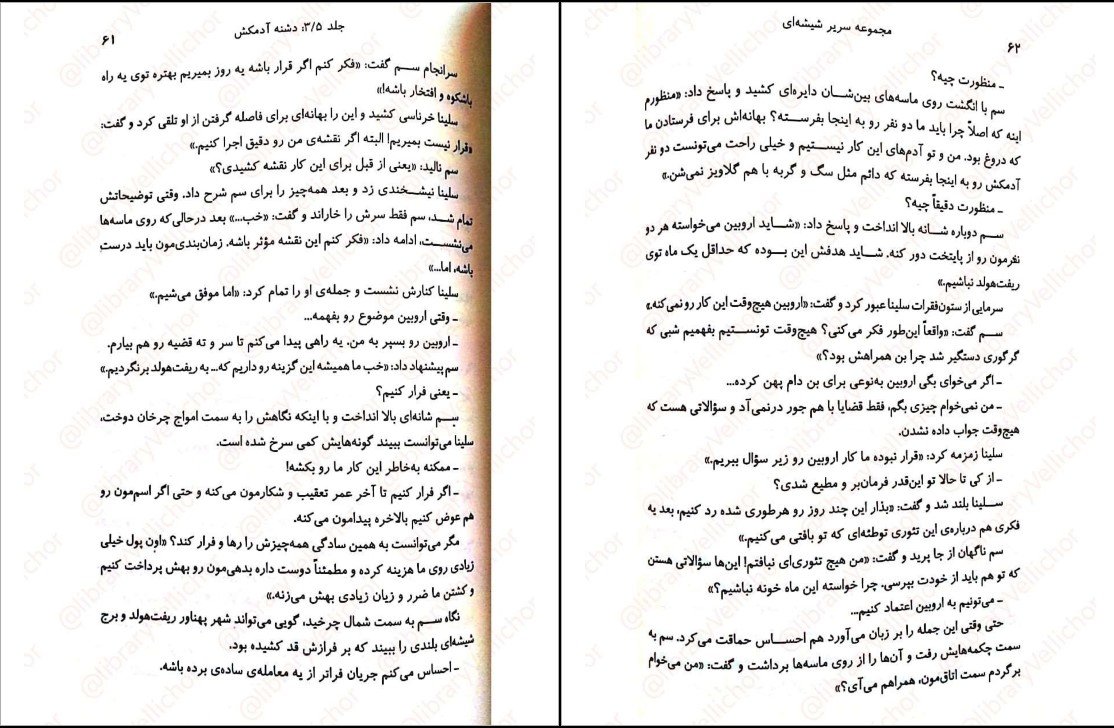 جلد ۳/۵: دشنه آدمکش
۶۱
سرانجام سم گفت: «فکر کنم اگر قرار باشه یه روز بمیریم بهتره توی یه راه
باشکوه و افتخار باشه!»
سلینا خرناسی کشید و این را بهانه‌ای برای فاصله گرفتن از او تلقی کرد و گفت:
«قرار نیست بمیریم! البته اگر نقشه‌ی من رو دقیق اجرا کنیم.»
سم نالید: «یعنی از قبل برای این کار نقشه کشیدی؟»
سلینا نیشخندی زد و بعد همه‌چیز را برای سم شرح داد. وقتی توضیحاتش
تمام شد، سم فقط سرش را خاراند و گفت: «خب...» بعد درحالی‌که روی ماسه‌ها
می‌نشست، ادامه داد: «فکر کنم این نقشه مؤثر باشه. زمان‌بندی‌مون باید درست
باشه، اما...»
سلینا کنارش نشست و جمله‌ی او را تمام کرد: «اما موفق می‌شیم.»
ـ وقتی اروبین موضوع رو بفهمه...
ـ اروبین رو بسپر به من. یه راهی پیدا می‌کنم تا سر و ته قضیه رو هم بیارم.
سم پیشنهاد داد: «خب ما همیشه این گزینه رو داریم که... به ریفت‌هولد برنگردیم.»
ـ یعنی فرار کنیم؟
سم شانه‌ای بالا انداخت و با اینکه نگاهش را به سمت امواج چرخان دوخت،
سلینا می‌توانست ببیند گونه‌هایش کمی سرخ شده است.
ـ ممکنه به‌خاطر این کار ما رو بکشه!
ـ اگر فرار کنیم تا آخر عمر تعقیب و شکارمون می‌کنه و حتی اگر اسم‌مون رو
هم عوض کنیم بالاخره پیدامون می‌کنه.
مگر می‌توانست به همین سادگی همه‌چیزش را رها و فرار کند؟ «اون پول خیلی
زیادی روی ما هزینه کرده و مطمئناً دوست داره بدهی‌مون رو بهش پرداخت کنیم
و کشتن ما ضرر و زیان زیادی بهش می‌زنه.»
نگاه سم به سمت شمال چرخید، گویی می‌تواند شهر پهناور ریفت‌هولد و برج
شیشه‌ای بلندی را ببیند که بر فرازش قد کشیده بود.
ـ احساس می‌کنم جریان فراتر از یه معامله‌ی ساده‌ی برده باشه.
مجموعه سریر شیشه‌ای
۶۲
ـ منظورت چیه؟
سم با انگشت روی ماسه‌های بین‌شان دایره‌ای کشید و پاسخ داد: «منظورم
اینه که اصلاً چرا باید ما دو نفر رو به اینجا بفرسته؟ بهانه‌اش برای فرستادن ما
که دروغ بود. من و تو آدم‌های این کار نیستیم و خیلی راحت می‌تونست دو نفر
آدمکش رو به اینجا بفرسته که دائم مثل سگ و گربه با هم گلاویز نمی‌شن.»
ـ منظورت دقیقاً چیه؟
سم دوباره شانه بالا انداخت و پاسخ داد: «شاید اروبین می‌خواسته هر دو
نفرمون رو از پایتخت دور کنه. شاید هدفش این بوده که حداقل یک ماه توی
ریفت‌هولد نباشیم.»
سرمایی از ستون‌فقرات سلینا عبور کرد و گفت: «اروبین هیچ‌وقت این کار رو نمی‌کنه.»
سم گفت: «واقعاً این‌طور فکر می‌کنی؟ هیچ‌وقت تونستیم بفهمیم شبی که
گرگوری دستگیر شد چرا بن همراهش بود؟»
ـ اگر می‌خوای بگی اروبین به‌نوعی برای بن دام پهن کرده...
ـ من نمی‌خوام چیزی بگم، فقط قضایا با هم جور درنمی‌آد و سؤالاتی هست که
هیچ‌وقت جواب داده نشدن.
سلینا زمزمه کرد: «قرار نبوده ما کار اروبین رو زیر سؤال ببریم.»
ـ از کی تا حالا تو این‌قدر فرمان‌بر و مطیع شدی؟
سلینا بلند شد و گفت: «بذار این چند روز رو هرطوری شده رد کنیم، بعد یه
فکری هم درباره‌ی این تئوری توطئه‌ای که تو بافتی می‌کنیم.»
سم ناگهان از جا پرید و گفت: «من هیچ تئوری‌ای نبافتم! این‌ها سؤالاتی هستن
که تو هم باید از خودت بپرسی. چرا خواسته این ماه خونه نباشیم؟»
ـ می‌تونیم به اروبین اعتماد کنیم...
حتی وقتی این جمله را بر زبان می‌آورد هم احساس حماقت می‌کرد. سم به
سمت چکمه‌هایش رفت و آن‌ها را از روی ماسه‌ها برداشت و گفت: «من می‌خوام
برگردم سمت اتاق‌مون، همراهم می‌آی؟»
@libraryVellichor